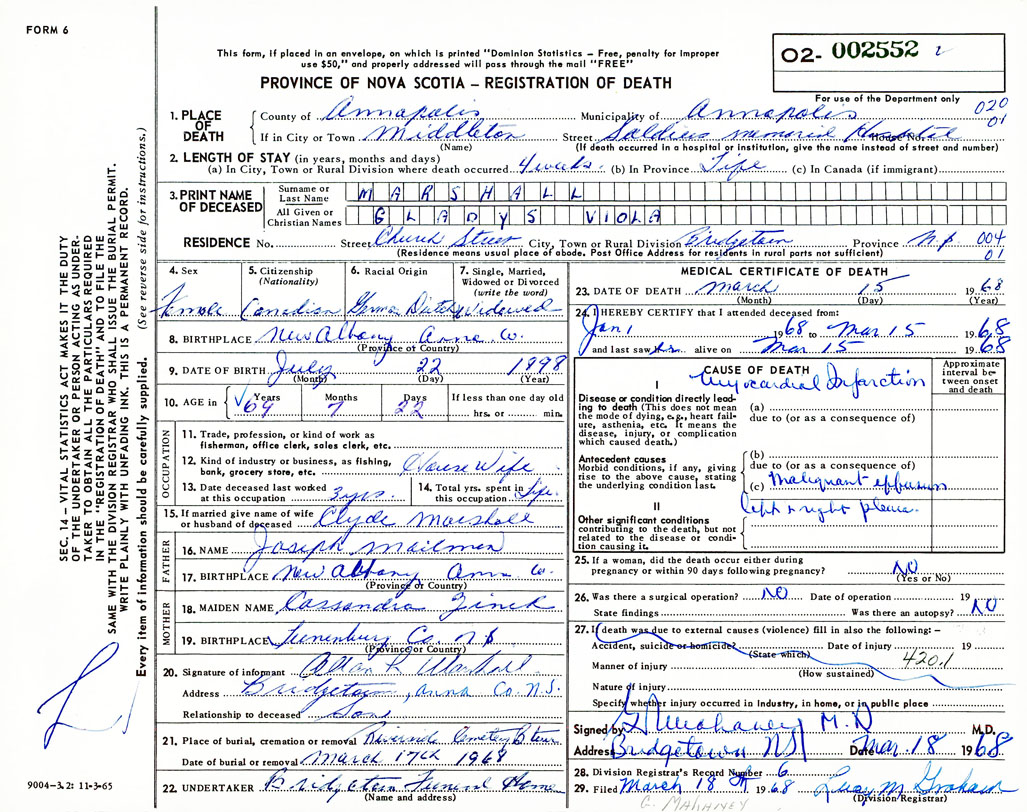 FORM 6
This form, if placed in an envelope, on which is printed "Dominion Statistics – Free, penalty for improper
use $50," and properly addressed will pass through the mail "FREE"
PROVINCE OF NOVA SCOTIA – REGISTRATION OF DEATH
02- 002552
For use of the Department only
020
01
1. PLACE OF DEATH
County of Annapolis Municipality of Annapolis
If in City or Town Middleton Street Soldiers Memorial
(Name) (If death occurred in a hospital or institution, give the name instead of street and number)
2. LENGTH OF STAY (in years, months and days)
(a) In City, Town or Rural Division where death occurred 4 weeks (b) In Province Life (c) In Canada (if immigrant)
3. PRINT NAME OF DECEASED
Surname or Last Name MARSHALL
All Given or Christian Names GLADYS VIOLA
RESIDENCE No. Street Church Street City, Town or Rural Division Bridgetown Province N.S. 004
01
(Residence means usual place of abode. Post Office Address for residents in rural parts not sufficient)
4. Sex
Female
5. Citizenship
(Nationality)
Canadian
6. Racial Origin
German Dutch
7. Single, Married,
Widowed or Divorced
(write the word)
Widowed
8. BIRTHPLACE New Albany Anna Co.
(Province or Country)
9. DATE OF BIRTH July 22 1898
(Month) (Day) (Year)
10. AGE in Years Months Days If less than one day old
69 7 22 hrs. or min.
OCCUPATION
11. Trade, profession, or kind of work as
fisherman, office clerk, sales clerk, etc.
12. Kind of industry or business, as fishing,
bank, grocery store, etc. House Wife
13. Date deceased last worked
at this occupation 3 yrs.
14. Total yrs. spent in
this occupation Life
15. If married give name of wife
or husband of deceased Clyde Marshall
FATHER
16. NAME Joseph Mailman
17. BIRTHPLACE New Albany Anna Co.
(Province or Country)
MOTHER
18. MAIDEN NAME Cassandra Zinck
19. BIRTHPLACE Lunenburg Co. N.S
(Province or Country)
20. Signature of informant
Address Bridgetown, Anna Co. N.S.
Relationship to deceased Son
21. Place of burial, cremation or removal Riverside Cemetery
Date of burial or removal March 17th 1968
22. UNDERTAKER Bridgetown Funeral Home
(Name and address)
MEDICAL CERTIFICATE OF DEATH
23. DATE OF DEATH March 15 1968
(Month) (Day) (Year)
24. I HEREBY CERTIFY that I attended deceased from:
Jan 1 1968 to Mar 15 1968
and last saw her alive on Mar 15 1968
CAUSE OF DEATH
Approximate
interval be-
tween onset
and death
I
Myocardial Infarction
Disease or condition directly lead-
ing to death (This does not mean
the mode of dying, e.g., heart fail-
ure, asthenia, etc. It means the
disease, injury, or complication
which caused death.)
(a)
due to (or as a consequence of)
Antecedent causes
Morbid conditions, if any, giving
rise to the above cause, stating
the underlying condition last.
(b)
due to (or as a consequence of)
(c) Malignant effusion
left & right pleura.
II
Other significant conditions
contributing to the death, but not
related to the disease or condi-
tion causing it.
25. If a woman, did the death occur either during
pregnancy or within 90 days following pregnancy? NO
(Yes or No)
26. Was there a surgical operation? NO Date of operation 19
State findings Was there an autopsy? NO
27. If death was due to external causes (violence) fill in also the following: –
Accident, suicide or homicide? Date of injury 19
(State which)
Manner of injury 420.1
(How sustained)
Nature of injury
Specify whether injury occurred in Industry, in home, or in public place
Signed by Mahaney M.D M.D.
Address Bridgetown NS Date Mar. 18 1968
28. Division Registrar's Record Number 6
29. Filed March 18th 1968 Lucy M. Graham
(Division Registrar)
G. MAHANEY
SEC. 14 – VITAL STATISTICS ACT MAKES IT THE DUTY
OF THE UNDERTAKER OR PERSON ACTING AS UNDER-
TAKER TO OBTAIN ALL THE PARTICULARS REQUIRED
IN THE "REGISTRATION OF DEATH" AND TO FILE THE
SAME WITH THE DIVISION REGISTRAR WHO SHALL ISSUE THE BURIAL PERMIT.
WRITE PLAINLY WITH UNFADING INK. THIS IS A PERMANENT RECORD.
Every item of information should be carefully supplied. (See reverse side for instructions.)
9004-3.2: 11-3-65